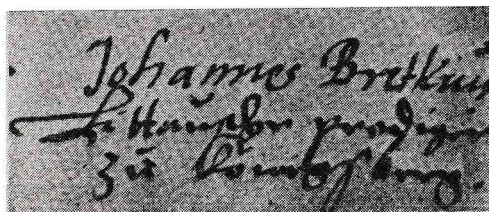 Johannes Bretkius
Littauscher prediger
zu Königsberg.